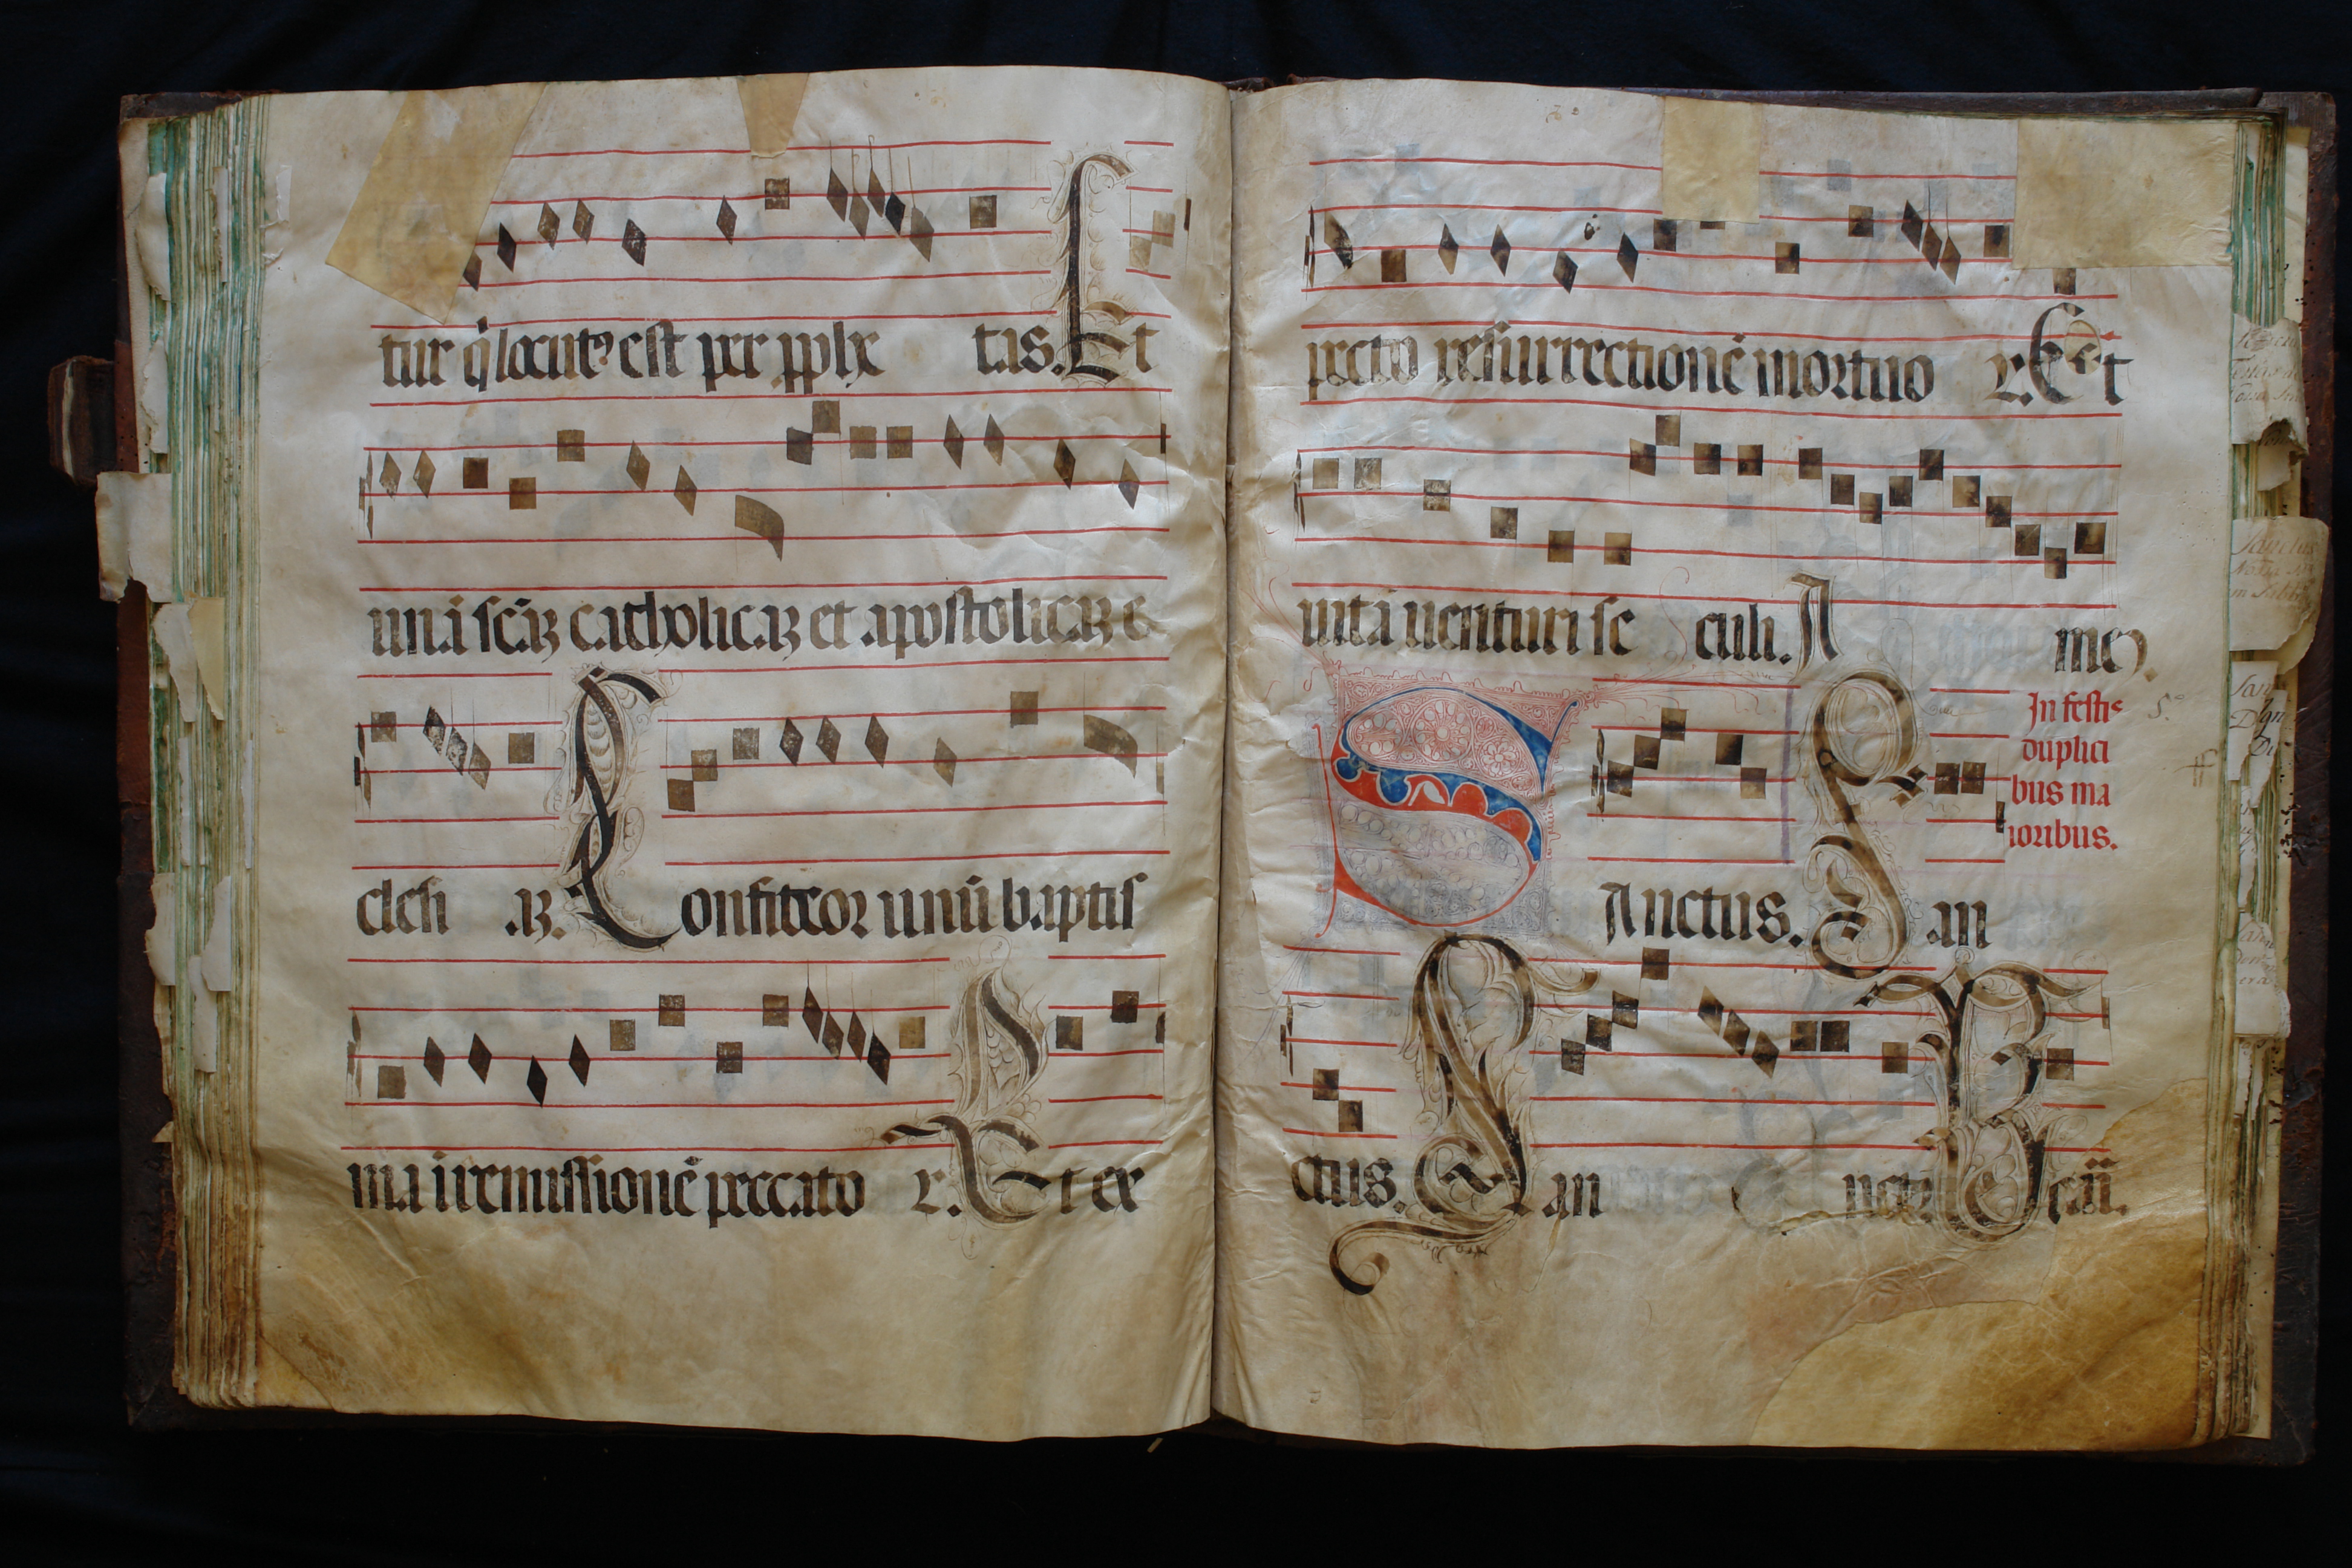 tur q̇ locutꝰ est per pphe tas. Et
unā scāȝ catholicaȝ et apostolicaȝ e
clesi aȝ. Confiteor unū baptis
ma i remissionē peccato r. Et ex
pecto resurrectionē mortuo r. Et
uitā uenturi se culi. A me.
In festis
duplici
bus ma
ioribus.
SAnctus. San
ctus. San nctꝰ